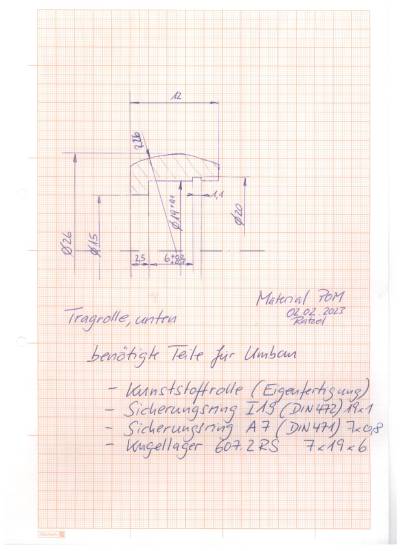 12
R26
Ø26
Ø15
Ø19
1,1
Ø20
2,5
Material POM
02.02.2023
Tragrolle, unten
benötigte Teile für Umbau
- Kunststoffrolle (Eigenfertigung)
- Sicherungsring I 19 (DIN 472) 19x1
- Sicherungsring A 7 (DIN 471) 7x0,8
- Kugellager 607.2RS 7x19x6